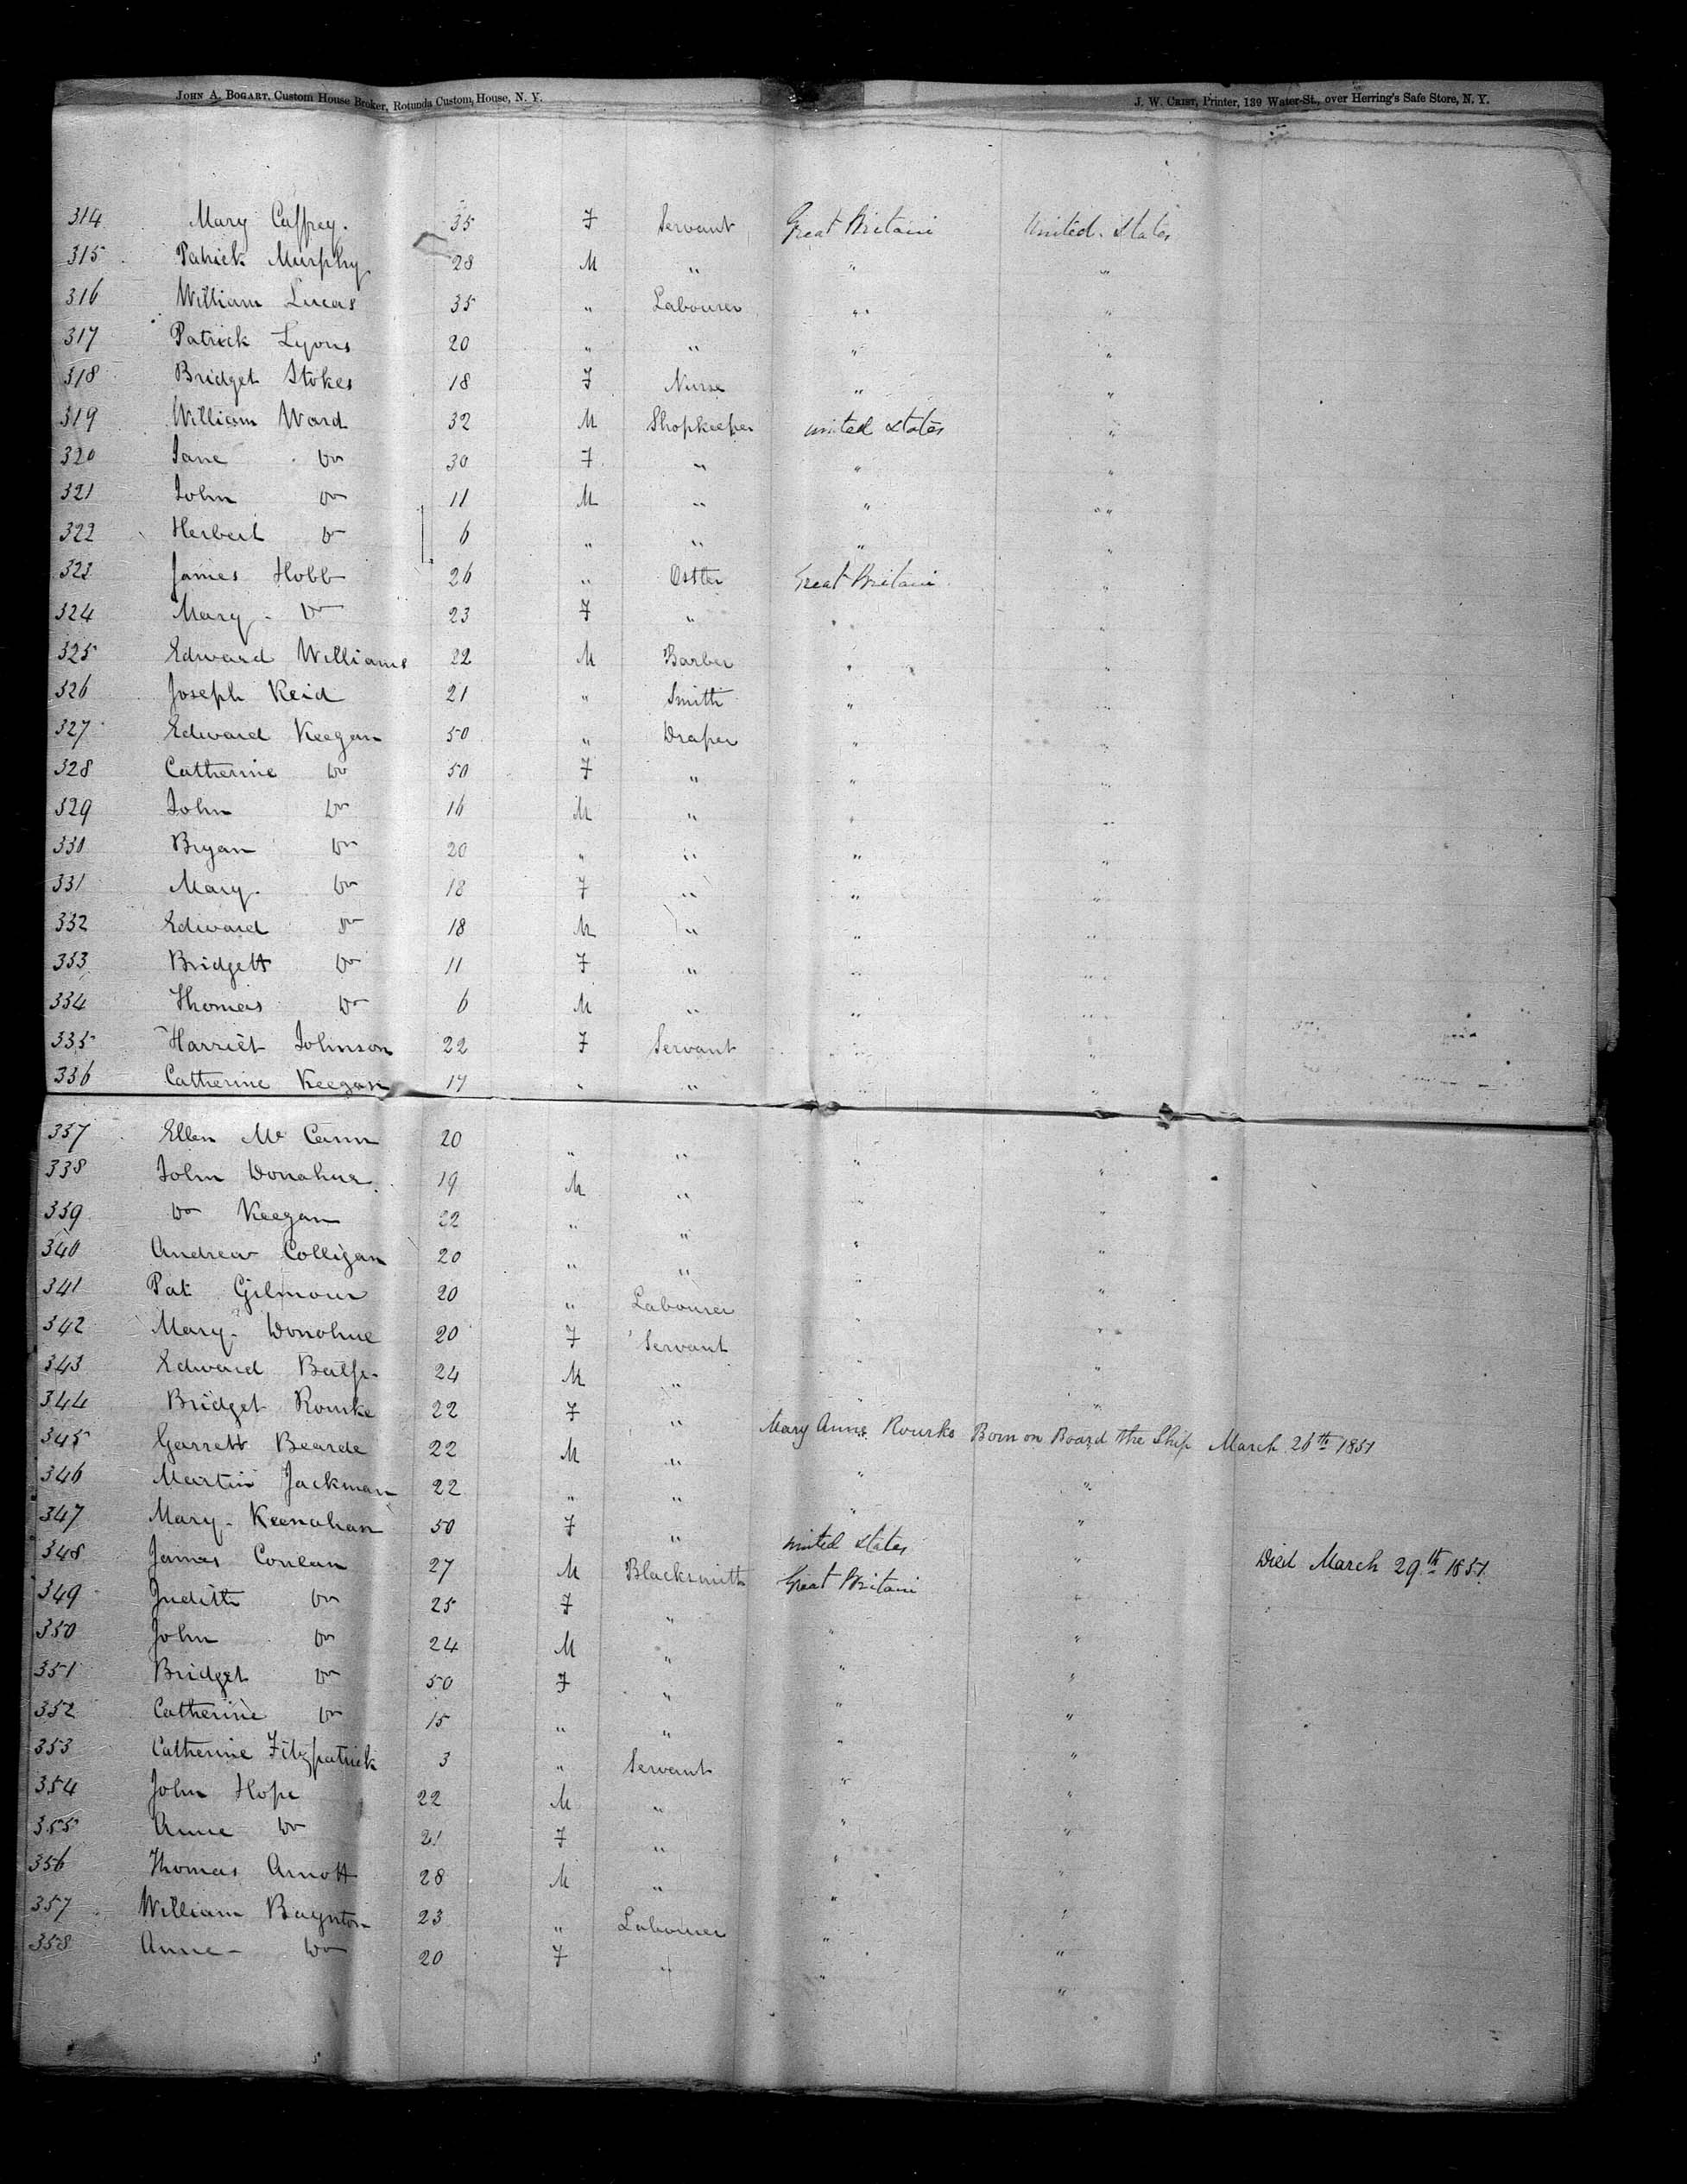 JOHN A. BOGART, Custom House Broker, Rotunda Custom House, N. Y. J. W. CRIST, Printer, 139 Water-St., over Herring's Safe Store, N. Y.
314 Mary Caffrey. 35 F Servant Great Britain United States
315 Patrick Murphy 28 M " " "
316 William Lucas 35 " Labourer " "
317 Patrick Lyons 20 " " " "
318 Bridget Stokes 18 F Nurse " "
319 William Ward 32 M Shopkeeper United States "
320 Jane Do 30 F " " "
321 John Do 11 M " " "
322 Herbert Do 6 " " " "
323 James Hobb 26 " Ostler Great Britain "
324 Mary Do 23 F " " "
325 Edward Williams 22 M Barber " "
326 Joseph Reid 21 " Smith " "
327 Edward Keegan 50 " Draper " "
328 Catherine Do 50 F " " "
329 John Do 16 M " " "
330 Bryan Do 20 " " " "
331 Mary Do 18 F " " "
332 Edward Do 18 M " " "
333 Bridgett Do 11 F " " "
334 Thomas Do 6 M " " "
335 Harriet Johnson 22 F Servant " "
336 Catherine Keegan 17 " " " "
337 Ellen Mc Cann 20 " " " "
338 John Donahue 19 M " " "
339 Do Keegan 22 " " " "
340 Andrew Colligan 20 " " " "
341 Pat Gilmour 20 " Labourer " "
342 Mary Donohue 20 F Servant " "
343 Edward Balfe 24 M " " "
344 Bridget Rourke 22 F " " "
Mary Anne Rourke Born on Board the Ship March 26th 1851
345 Garrett Bearde 22 M " " "
346 Martin Jackman 22 " " " "
347 Mary Keenahan 50 F " United States " Died March 29th 1851
348 James Conlan 27 M Blacksmith Great Britain "
349 Judith Do 25 F " " "
350 John Do 24 M " " "
351 Bridget Do 50 F " " "
352 Catherine Do 15 " " " "
353 Catherine Fitzpatrick 3 " Servant " "
354 John Hope 22 M " " "
355 Anne Do 21 F " " "
356 Thomas Arnott 28 M " " "
357 William Baynton 23 " Labourer " "
358 Anne Do 20 F " " "